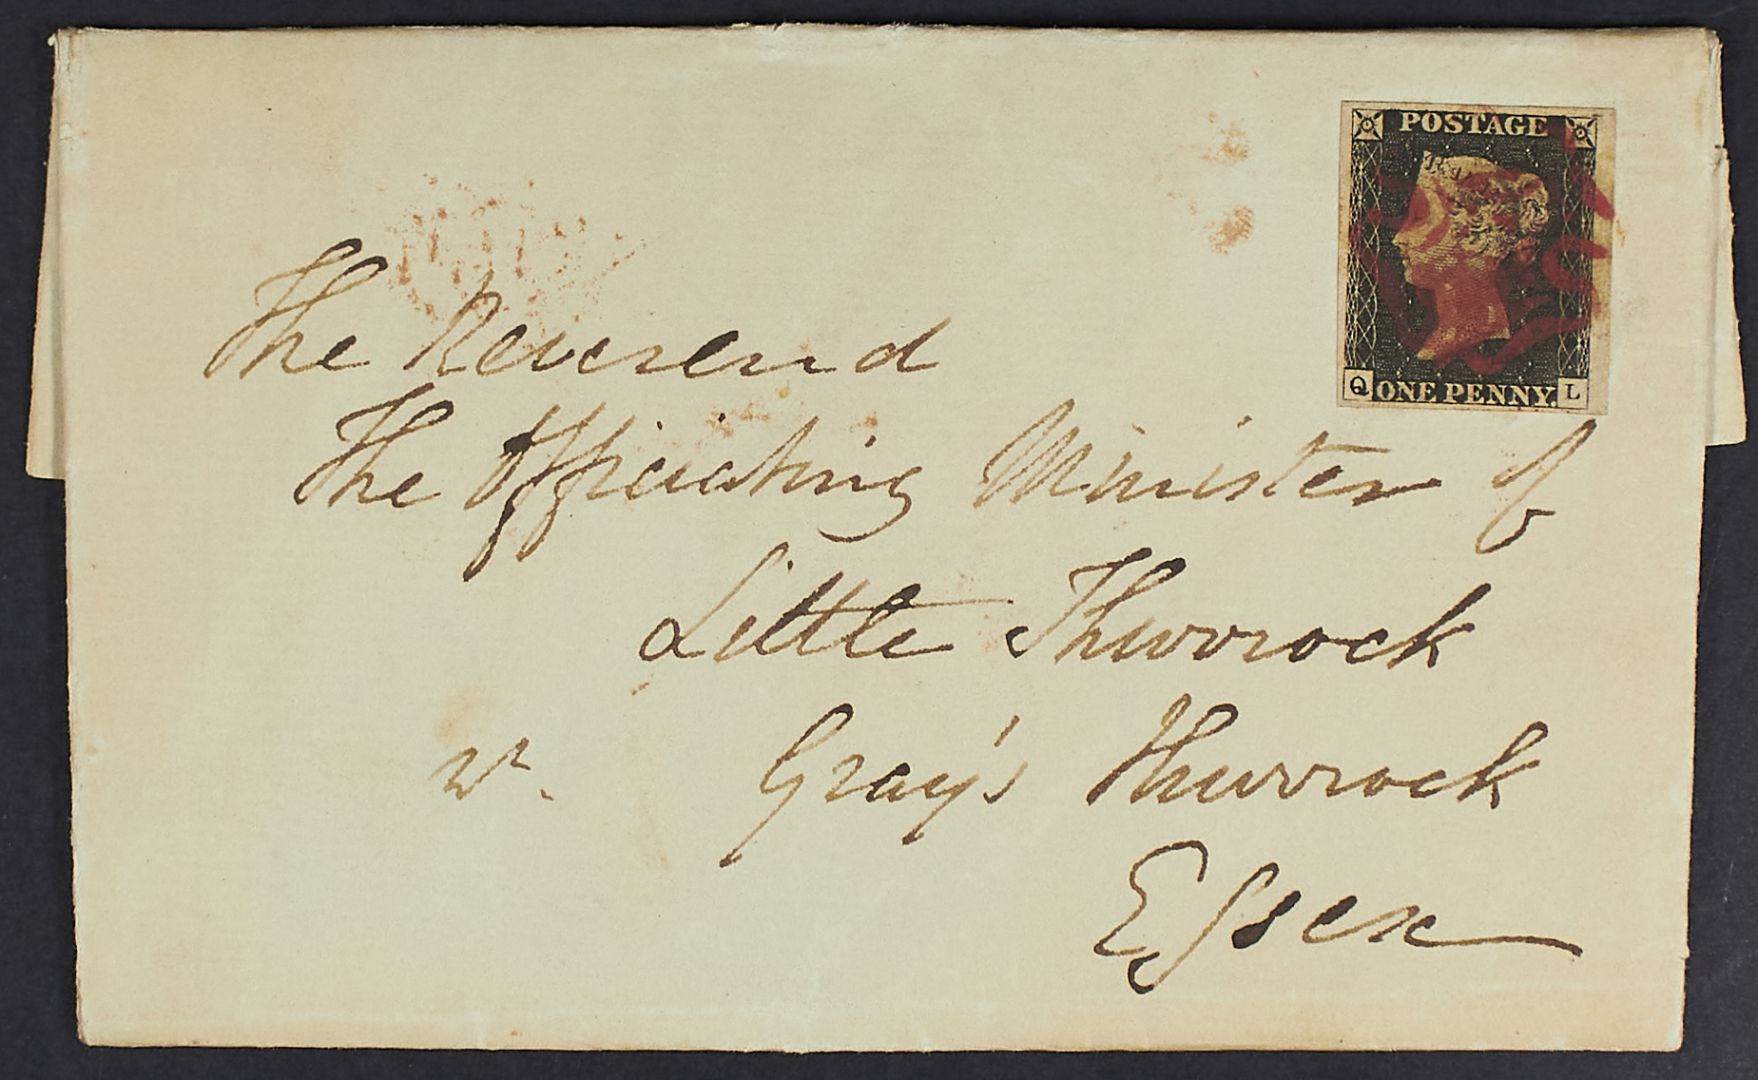 POSTAGE
Q ONE PENNY. L
The Reverend
The Officiating Minister of
Little Thurrock
Gray's Thurrock
Essex